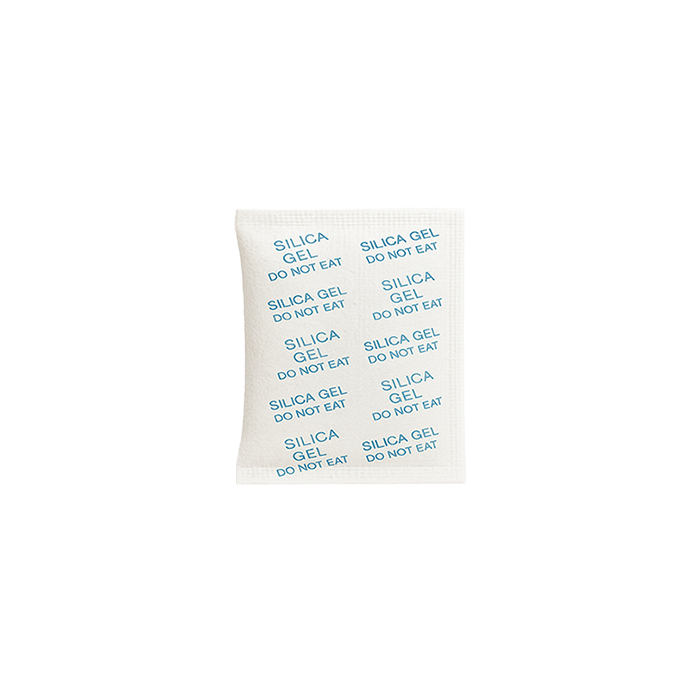 SILICA
GEL
DO NOT EAT
SILICA GEL
DO NOT EAT
SILICA GEL
DO NOT EAT
SILICA
GEL
DO NOT EAT
SILICA
GEL
DO NOT EAT
SILICA GEL
DO NOT EAT
SILICA GEL
DO NOT EAT
SILICA
GEL
DO NOT EAT
SILICA
GEL
DO NOT EAT
SILICA GEL
DO NOT EAT